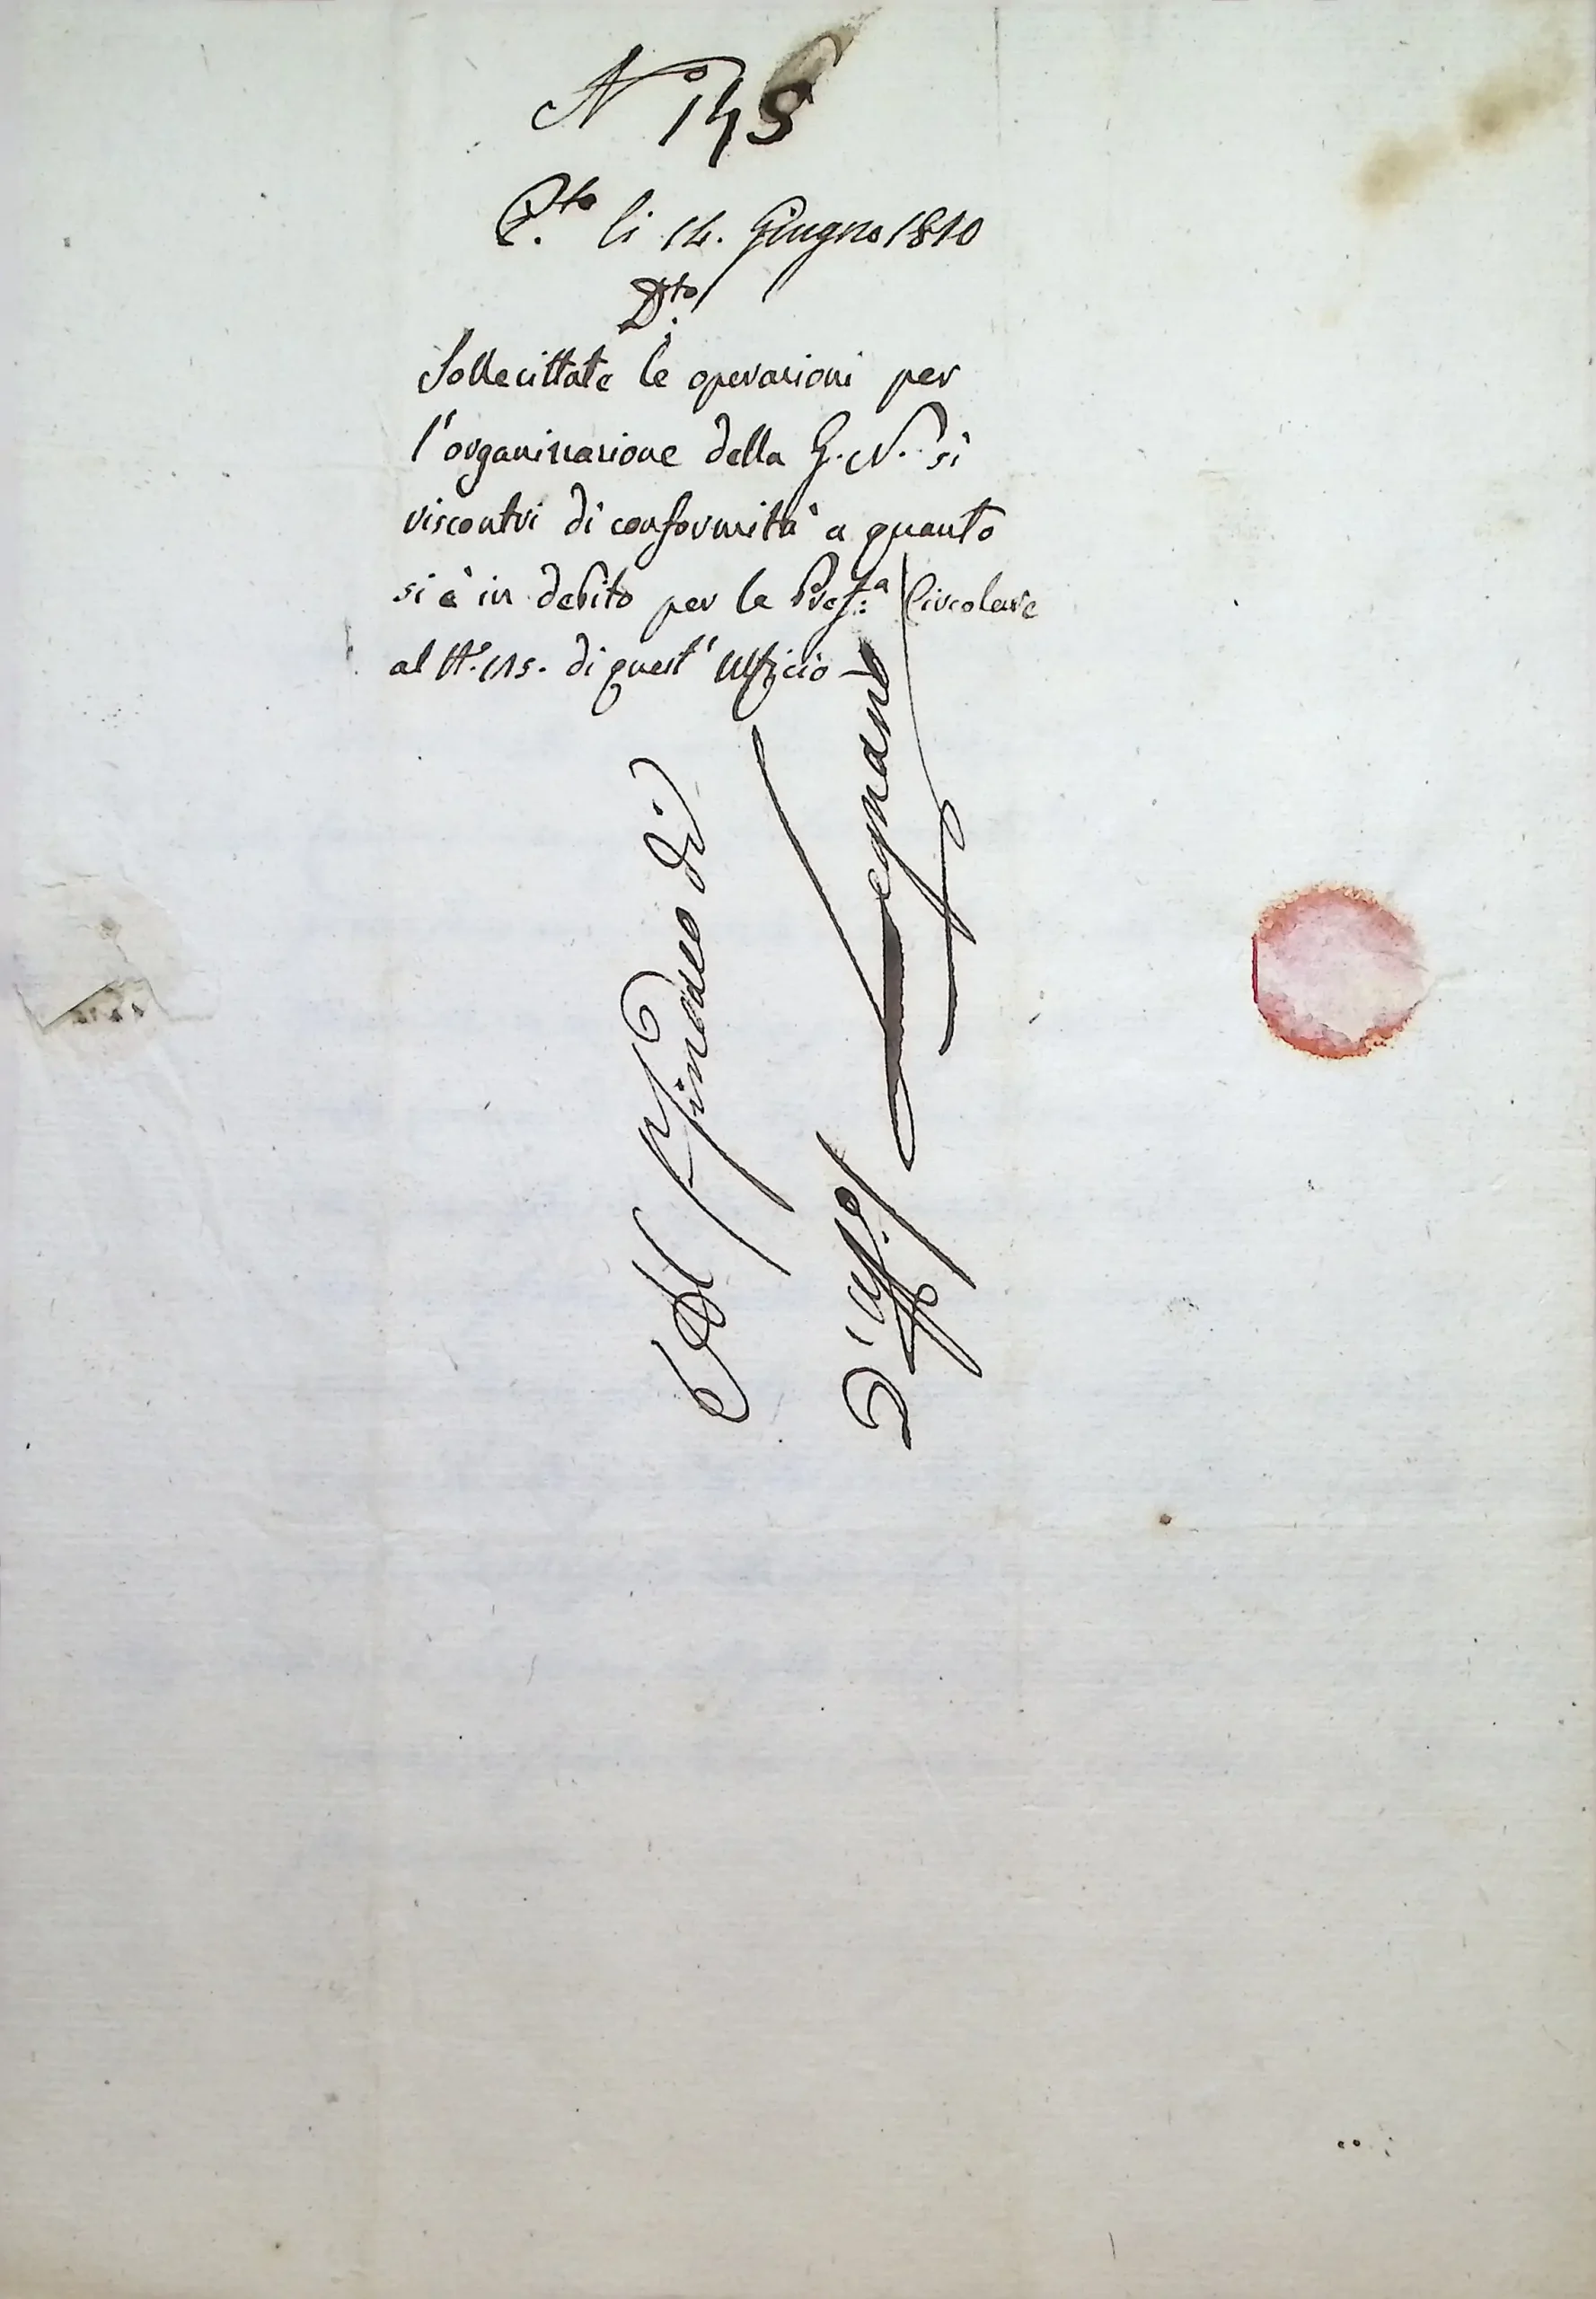 N° 145
P.to li 14. Giugno 1810
D.to
Sollecittate le operazioni per
l'organizzazione della G. N. si
riscontri di conformità a quanto
si è in debito per la Pref.a Circolare
al N.° 115. di quest' Ufficio
Al Sindaco di
Legnano
D' Uff.°